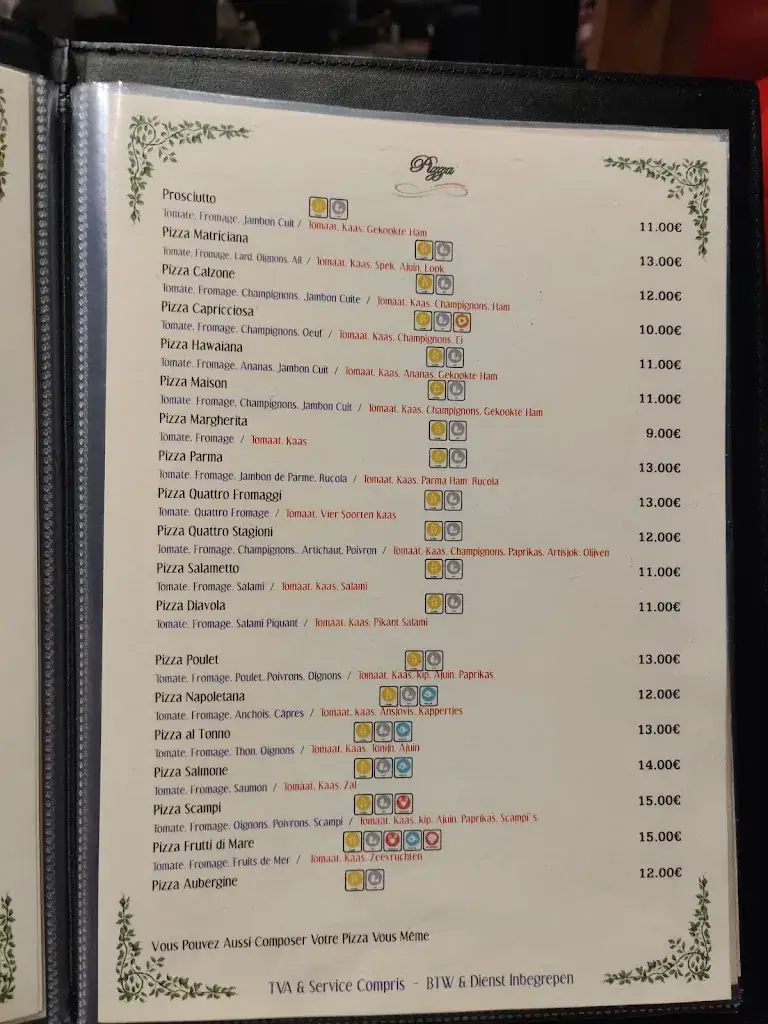 Pizza
Prosciutto
Tomate. Fromage. Jambon Cuit / Tomaat. Kaas. Gekookte Ham 11.00€
Pizza Matriciana
Tomate. Fromage. Lard. Oignons. Ail / Tomaat. Kaas. Spek. Ajuin. Look 13.00€
Pizza Calzone
Tomate. Fromage. Champignons. Jambon Cuite / Tomaat. Kaas. Champignons. Ham 12.00€
Pizza Capricciosa
Tomate. Fromage. Champignons. Oeuf / Tomaat. Kaas. Champignons. Ei 10.00€
Pizza Hawaiana
Tomate. Fromage. Ananas. Jambon Cuit / Tomaat. Kaas. Ananas. Gekookte Ham 11.00€
Pizza Maison
Tomate. Fromage. Champignons. Jambon Cuit / Tomaat. Kaas. Champignons. Gekookte Ham 11.00€
Pizza Margherita 9.00€
Tomate. Fromage / Tomaat. Kaas
Pizza Parma 13.00€
Tomate. Fromage. Jambon de Parme. Rucola / Tomaat. Kaas. Parma Ham. Rucola
Pizza Quattro Fromaggi 13.00€
Tomate. Quattro Fromage / Tomaat. Vier Soorten Kaas
Pizza Quattro Stagioni 12.00€
Tomate. Fromage. Champignons.. Artichaut. Poivron / Tomaat. Kaas. Champignons. Paprikas. Artisjok. Olijven
Pizza Salametto 11.00€
Tomate. Fromage. Salami / Tomaat. Kaas. Salami
Pizza Diavola 11.00€
Tomate. Fromage. Salami Piquant / Tomaat. Kaas. Pikant Salami
Pizza Poulet 13.00€
Tomate. Fromage. Poulet. Poivrons. Oignons. / Tomaat. Kaas. Kip. Ajuin. Paprikas
Pizza Napoletana 12.00€
Tomate. Fromage. Anchois. Câpres / Tomaat. kaas. Ansjovis. Kappertjes
Pizza al Tonno 13.00€
Tomate. Fromage. Thon. Oignons / Tomaat. Kaas. Tonijn. Ajuin
Pizza Salmone 14.00€
Tomate. Fromage. Saumon / Tomaat. Kaas. Zal
Pizza Scampi 15.00€
Tomate. Fromage. Oignons. Poivrons. Scampi / Tomaat. Kaas. kip. Ajuin. Paprikas. Scampi's
Pizza Frutti di Mare 15.00€
Tomate. Fromage. Fruits de Mer / Tomaat. Kaas. Zeevruchten
Pizza Aubergine 12.00€
Vous Pouvez Aussi Composer Votre Pizza Vous Même
TVA & Service Compris - BTW & Dienst Inbegrepen